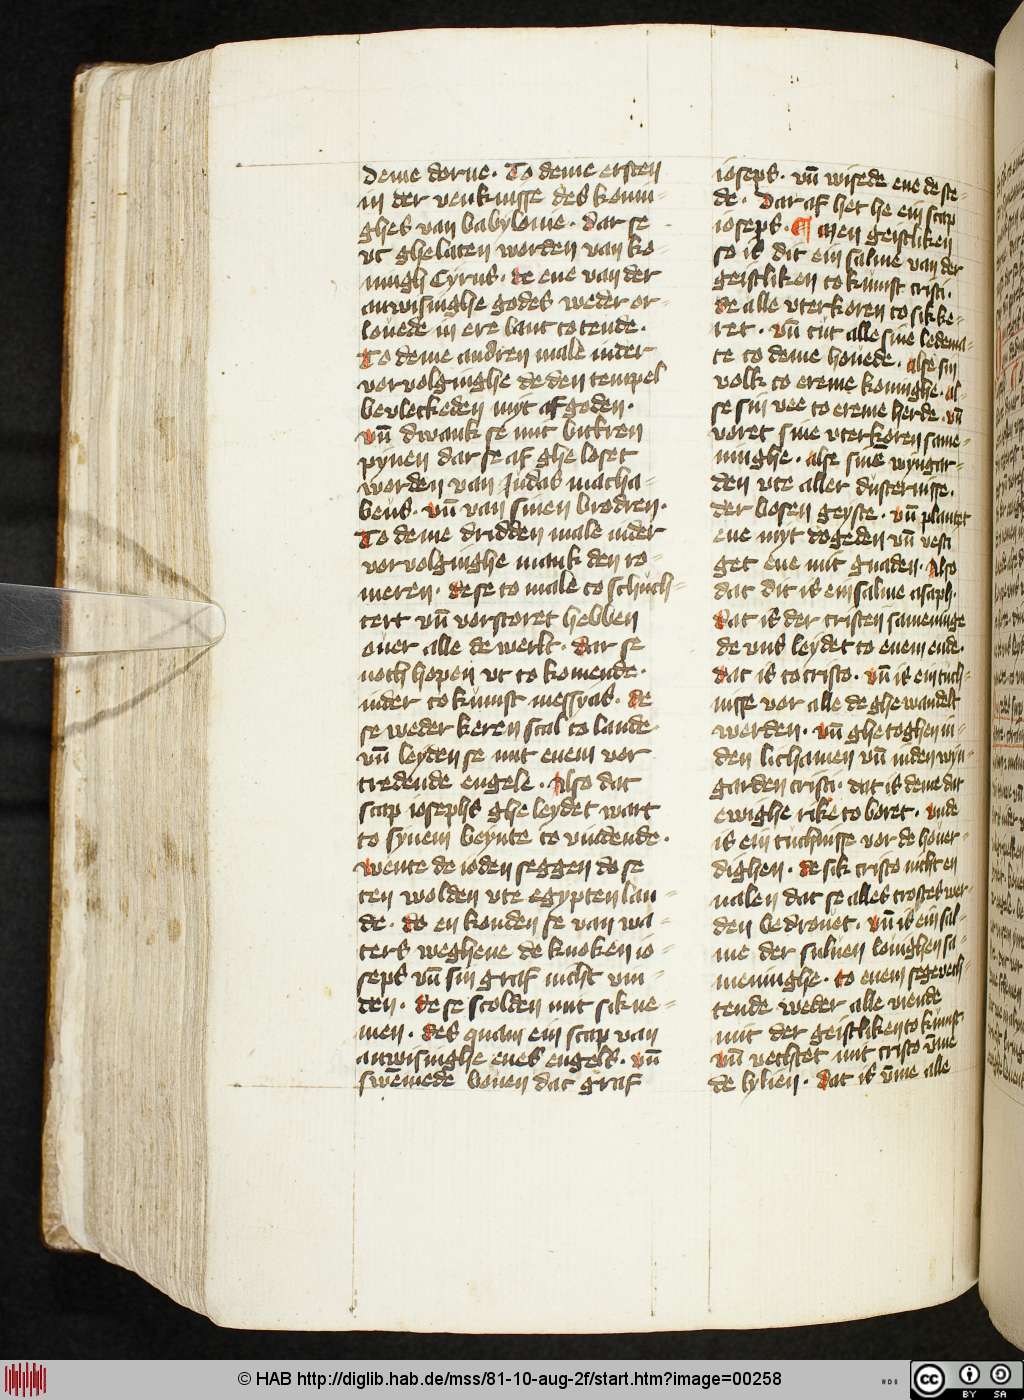 deme dorne. To deme ersten
in der venknisse des konin-
ghes van babylonie. Dar se
vt ghelaten worden van ko-
ningh Cyrus. de ene van der
anwisinghe godes weder or-
louede in ere lant to tende.
To deme andren male in der
vorvolginghe de den tempel
bevleckeden myt afgoden.
vn̄ dwank se mit bittren
pynen dar se af ghe loset
worden van Judas macha-
beus. vn̄ van sinen brodren.
To deme dridden male in der
vorvolginghe mank den ro-
meren. de se to male to schuch-
tert vn̄ vorstoret hebben
ouer alle de werlt. dar se
noch hopen vt to komende.
in der to kumst messyas. de
se weder keren scal to lande
vn̄ leyden se mit enem vor
tredende engele. Also dat
scap iosephs ghe leydet wart
to synem beynte to vindende.
wente de ioden seggen do se
ten wolden vte egypten lan-
de. do en konden se van wa-
ters weghene de knoken io-
seps vn̄ sin graf nicht vin-
den. de se scolden mit sik ne-
men. des quam ein scap van
anwisinghe enes engels. vn̄
swēmede bouen dat graf
ioseps. vn̄ wisede ene de ste-
de. dar af het he ein scap
ioseps. ¶ men geistliken
so is dit ein salme van der
geistliken to kumst cristi.
de alle vterkoren to sik ke-
ret. vn̄ tut alle sine ledema-
te to deme houede. alse sin
volk to ereme koninghe. al-
se sin vee to ereme herde. vn̄
voret sine vterkoren same-
ninghe. alse sinē wyngar-
den vte aller dusternisse.
der bosen geyste. vn̄ plantet
ene myt dogeden vn̄ vesti
get ene mit gnaden. Also
dat dit is ein salme asaph.
dat is der cristen sameninge
de vns leydet to enem ende.
dat is to cristo. vn̄ is ein tuch-
nisse vor alle de ghe wandelt
werden. vn̄ ghetoghen in
den lichamen vn̄ in den wyn-
garden cristi. dat is deme dat
ewighe rike to boret. vnde
is ein tuchnisse vor de houer-
dighen. de sik cristo nicht en
nalen dat se alles trostes wer-
den bedrouet. vn̄ is ein sal-
me der suluen louighen sa-
meninghe. to enem segevech-
tende weder alle viende
mit der geistliken to kumst
vn̄ vechtet mit cristo vm̄e
de lylien. dat is vm̄e alle
© HAB http://diglib.hab.de/mss/81-10-aug-2f/start.htm?image=00258
HAB
cc BY SA